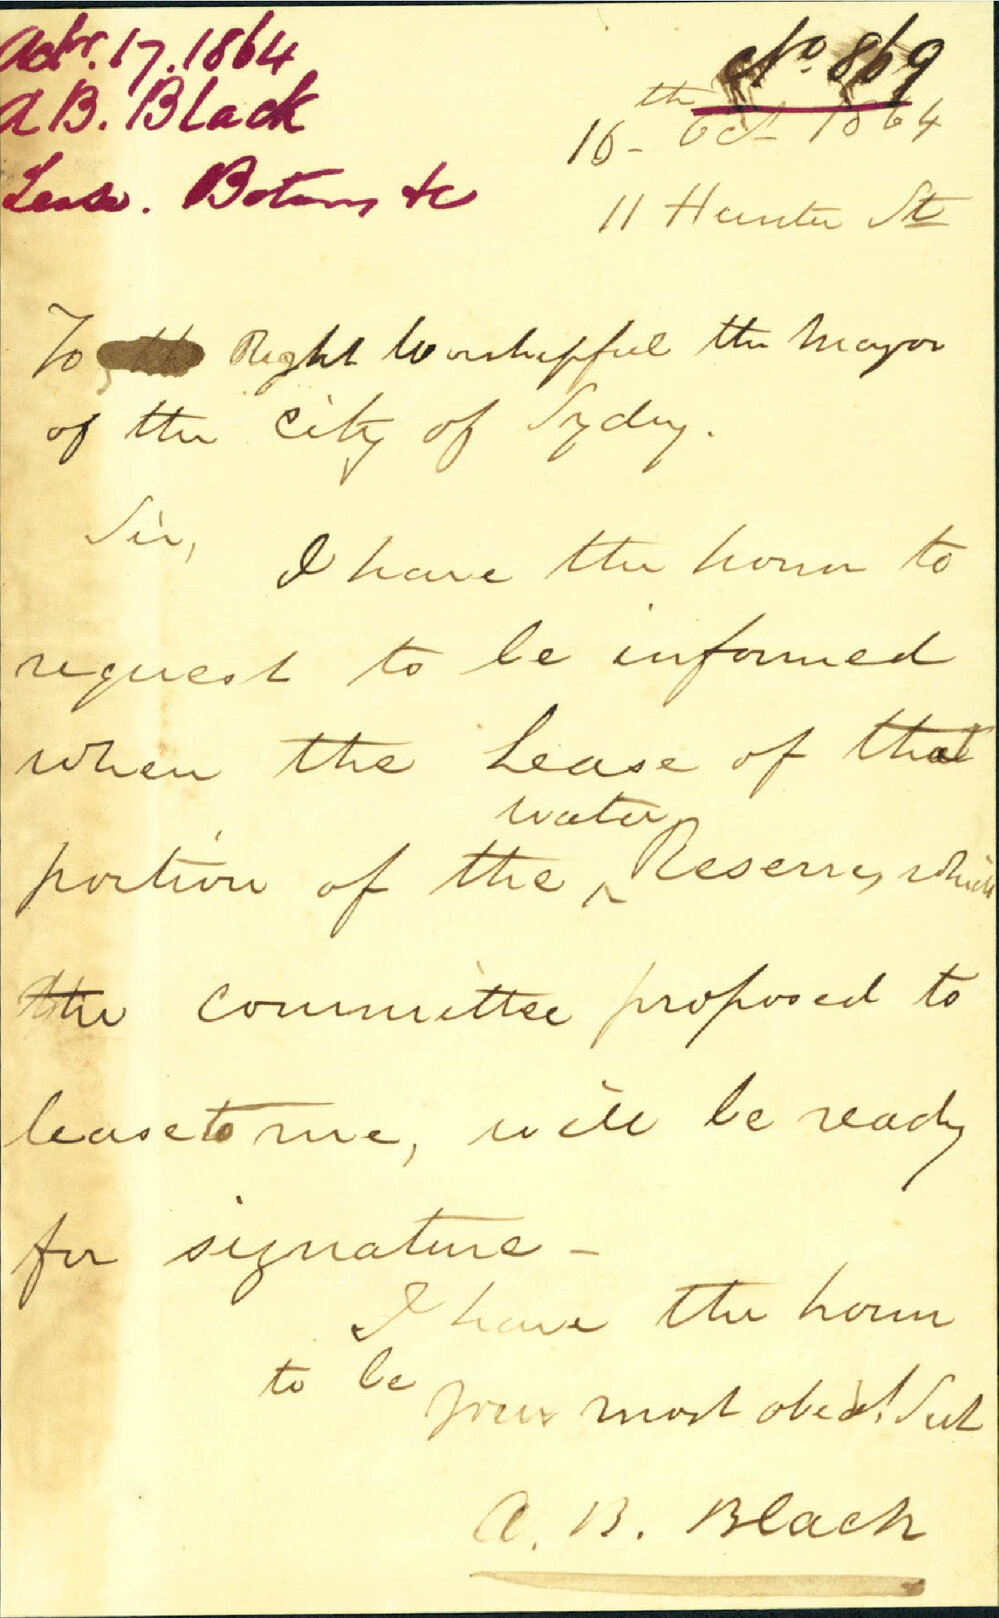 Octr. 17. 1864
A B. Black
Lease. Botany &c
No. 869
16th Oct 1864
11 Hunter St
To Right Worshipful the Mayor
of the City of Sydney.
Sir,
I have the honor to
request to be informed
when the Lease of that
portion of the ^ water Reserve, which
the committee proposed to
lease to me, will be ready
for signature -
I have the honor
to be
your most obedt. Svt
A. B. Black